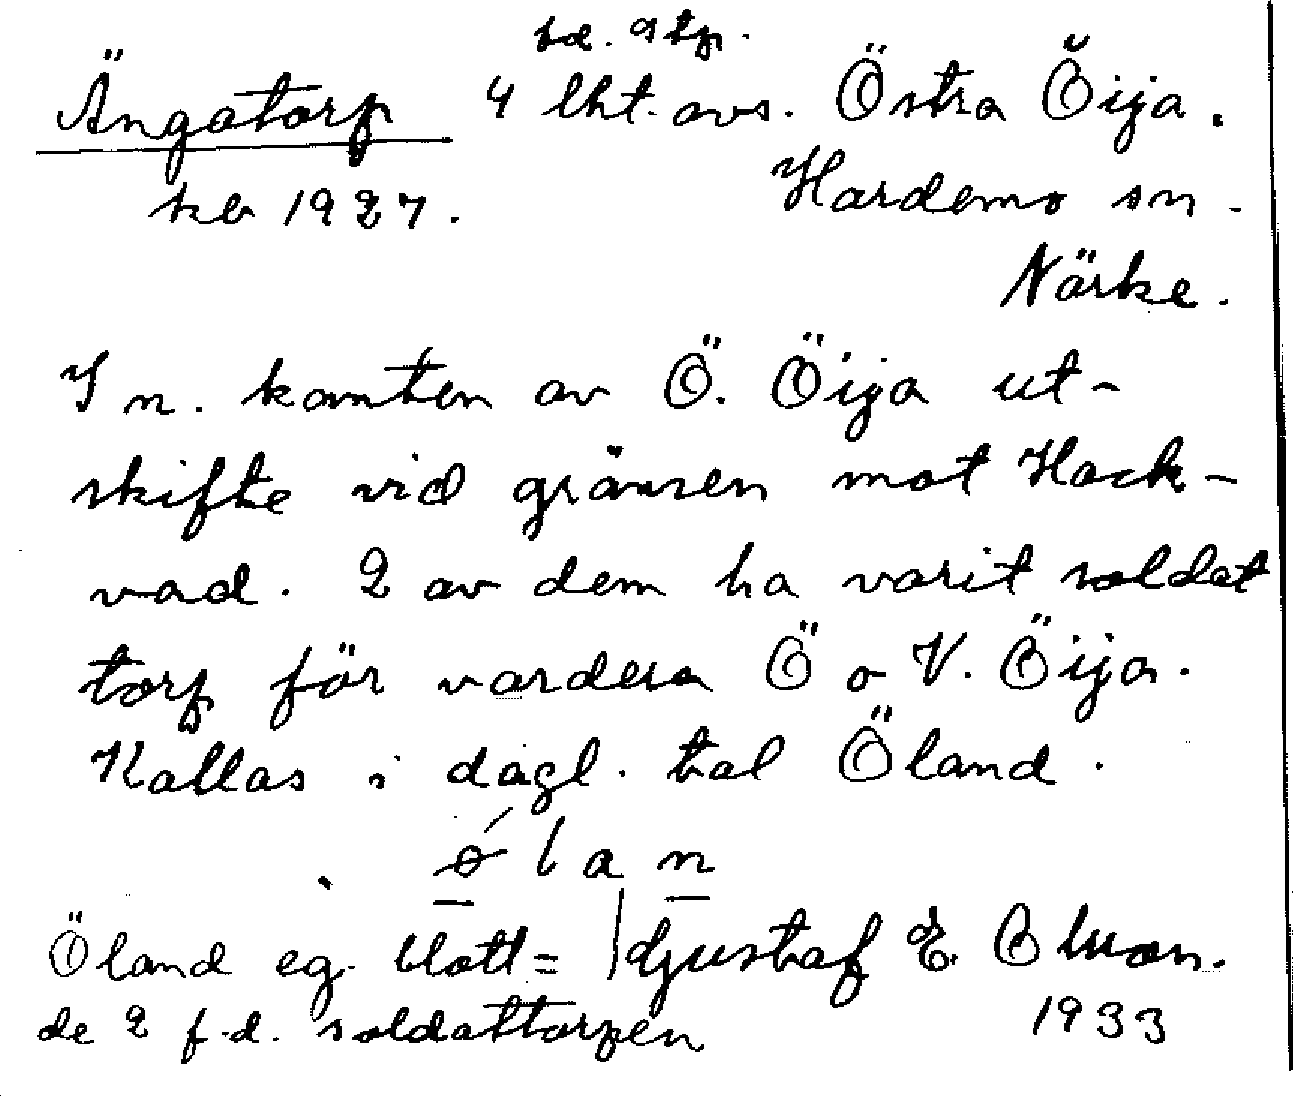 Ängatorp 4 lht. avs. Östra Öija.
kb 1927. Hardemo sn.
Närke.
I n. kanten av Ö. Öija ut-
skifte vid gränsen mot Hack-
vad. 2 av dem ha varit soldat
torp för vardera Ö o V. Öija.
Kallas i dagl. tal Öland.
ǿlan
Öland eg. blott =
de 2 f.d. soldattorpen
Gustaf E. Olwon.
1933